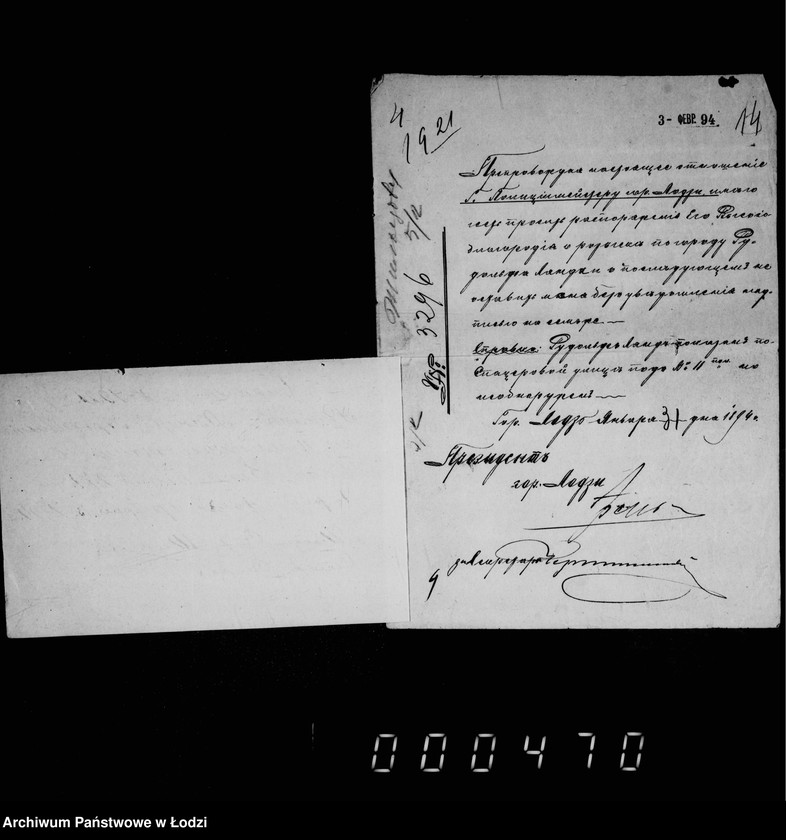 4
1921
3- ФЕВР. 94
14
Препровождая настоящее отношеніе
Г. Полиціймейстеру гор. Лодзи имѣю
честь просить распоряженія Его Высоко
благородія о розыскѣ по городу Ру-
дольфа Ланди и о послѣдующемъ не
оставить меня безъ увѣдомленія над-
писью на семъ же.
Справка: Рудольфъ Ландъ показанъ по
Спацеровой улицѣ подъ № 11 но
не обнаруженъ
Гор. Лодзь Января 31 дня 1894 г.
Президентъ
гор. Лодзи
за Секретаря
№ 3296
5/2
000470
Archiwum Państwowe w Łodzi